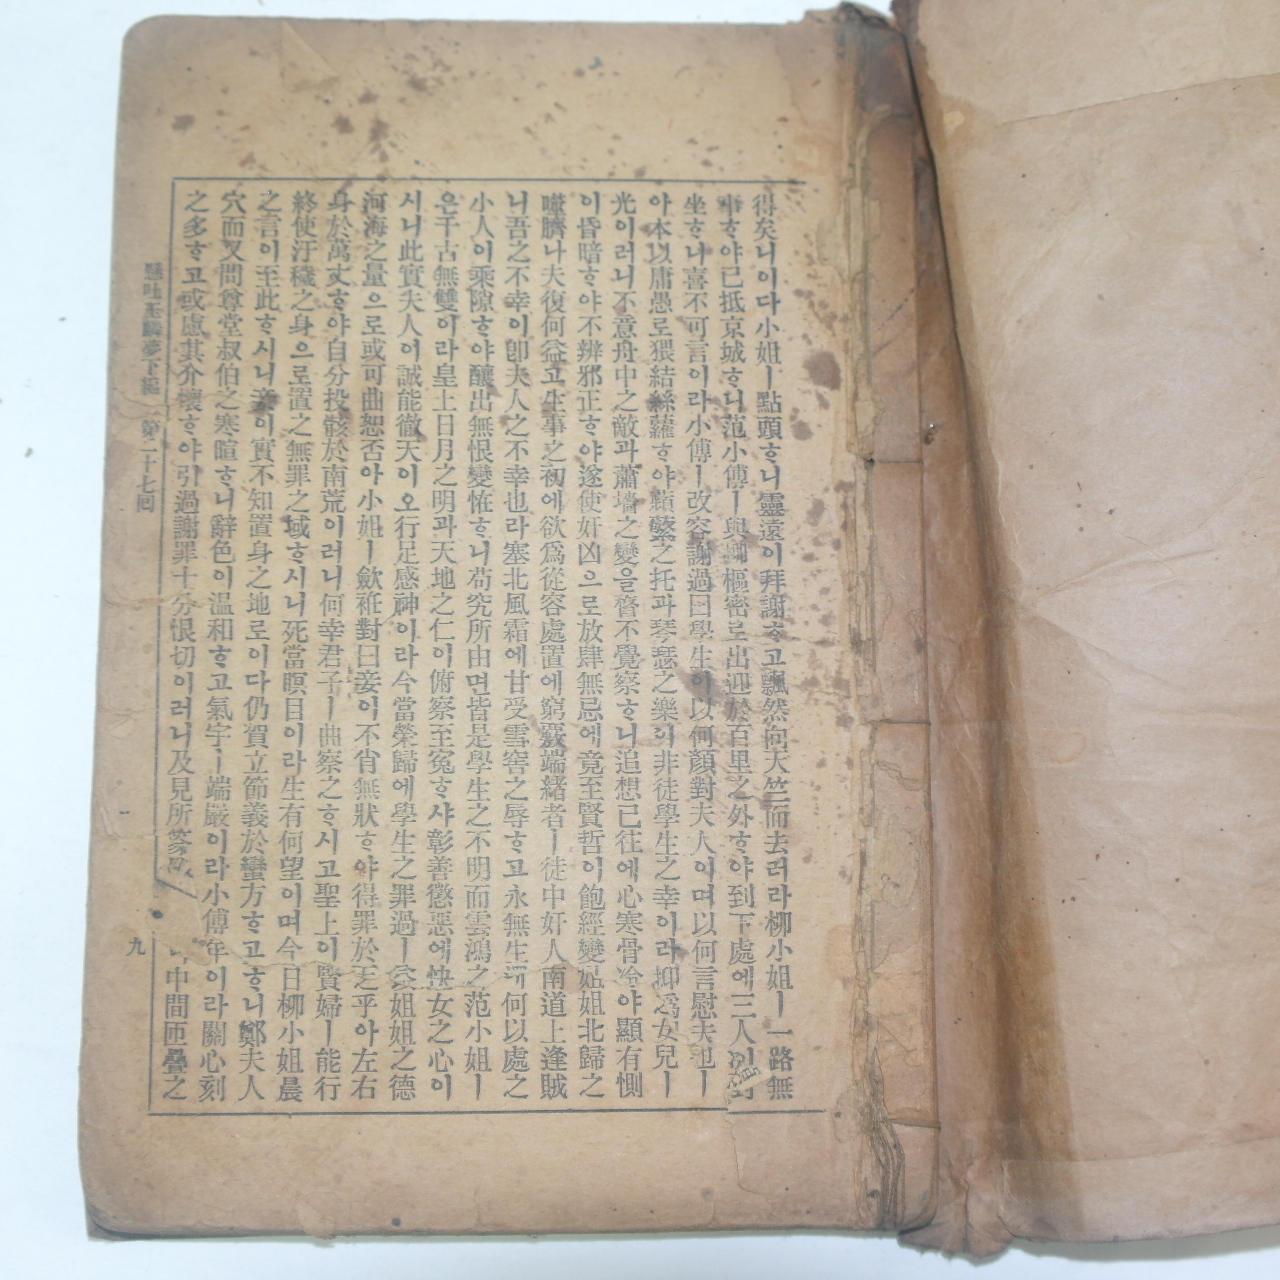 得矣니이다小姐ㅣ點頭ᄒᆞ니靈遠이拜謝ᄒᆞ고飄然向天竺而去러라柳小姐ㅣ一路無
事ᄒᆞ야已抵京城ᄒᆞ니范小傅ㅣ與柳樞密로出迎於百里之外ᄒᆞ야到下處에三人이
坐ᄒᆞ니喜不可言이라小傅ㅣ改容謝過曰學生이以何顔對夫人이며以何言慰夫也ㅣ
아本以庸愚로猥結絲蘿ᄒᆞ야蘋蘩之托과琴瑟之樂이非徒學生之幸이라抑爲女兒ㅣ
光이러니不意舟中之敵과蕭墻之變을瞀不覺察ᄒᆞ니追想已往에心寒骨冷야顯有惻
이昏暗ᄒᆞ야不辨邪正ᄒᆞ야遂使奸凶으로放肆無忌에竟至賢哲이飽經變 姐北歸之
噬臍나夫復何益고生事之初에欲爲從容處置에窮覈端緖者ㅣ徒中奸人南道上逢賊
니吾之不幸이卽夫人之不幸也라塞北風霜에甘受雪窖之辱ᄒᆞ고永無生 何以處之
小人이乘隙ᄒᆞ야釀出無恨變恠ᄒᆞ니苟究所由면皆是學生之不明而雲鴻之范小姐ㅣ
은千古無雙이라皇上日月之明과天地之仁이俯察至寃ᄒᆞ샤彰善懲惡에快女之心이
시니此實夫人이誠能徹天이오行足感神이라今當榮歸에學生之罪過ㅣ 姐姐之德
河海之量으로或可曲恕否아小姐ㅣ歛袵對曰妾이不肖無狀ᄒᆞ야得罪於 乎아左右
身於萬丈ᄒᆞ야自分投骸於南荒이러니何幸君子ㅣ曲察之ᄒᆞ시고聖上이賢婦ㅣ能行
終使汙穢之身으로置之無罪之域ᄒᆞ시니死當暝目이라生有何望이며今日柳小姐晨
之言이至此ᄒᆞ시니妾이實不知置身之地로이다仍賀立節義於蠻方ᄒᆞ고ᄒᆞ니鄭夫人
穴而又問尊堂叔伯之寒暄ᄒᆞ니辭色이温和ᄒᆞ고氣宇ㅣ端嚴이라小傅年이라關心刻
之多ᄒᆞ고或慮其介懷ᄒᆞ야引過謝罪十分恨切이러니及見所 中間匝疊之
懸吐玉麟夢下編 第二十七回 九